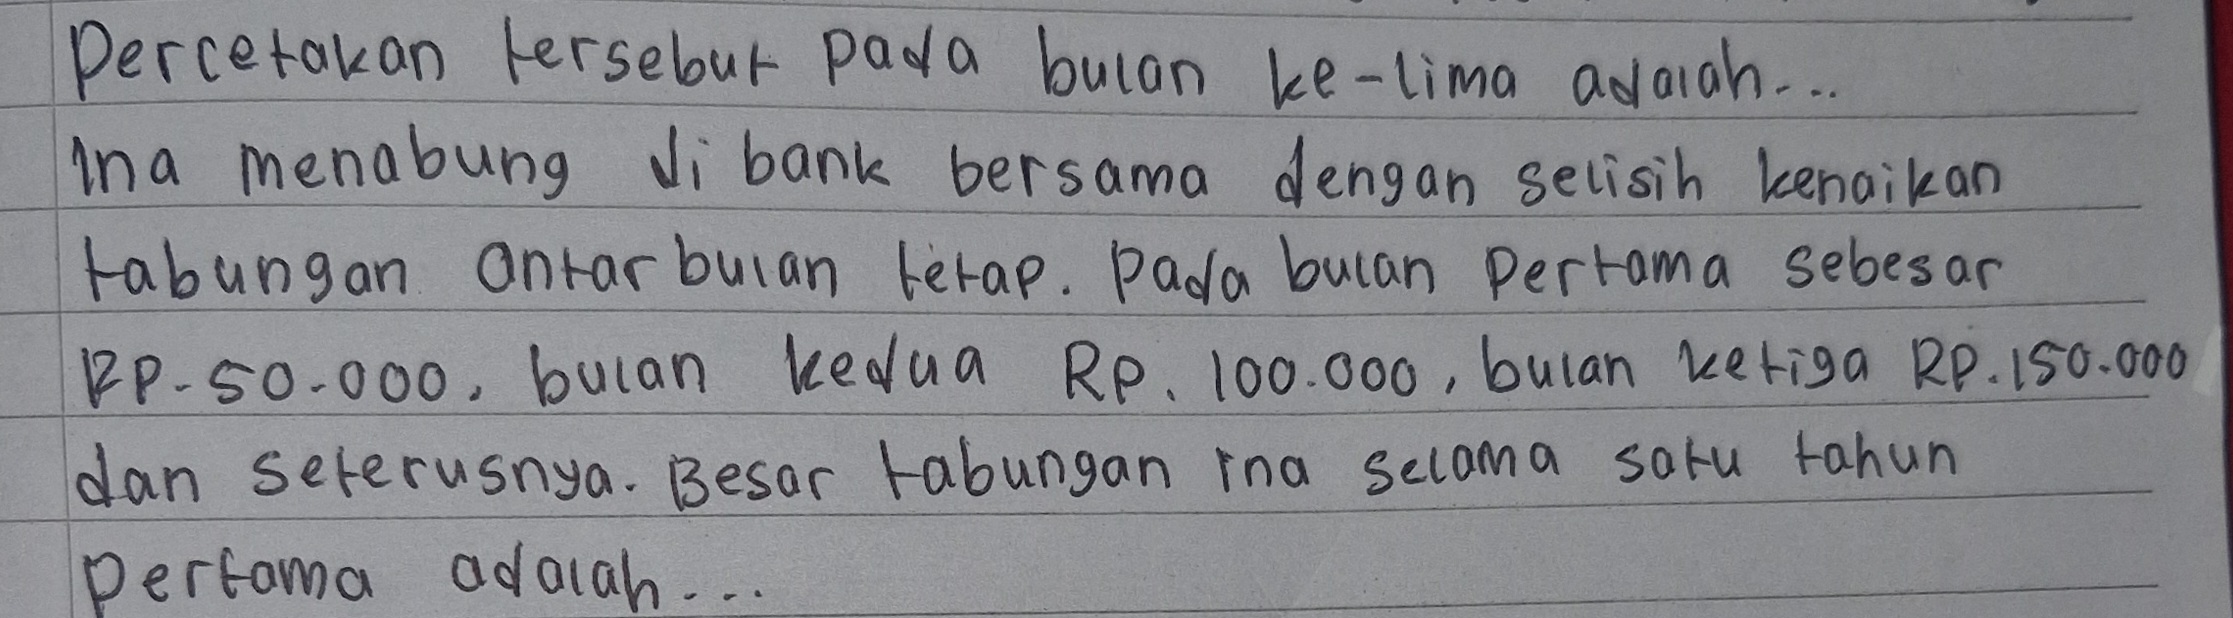 Percetakan tersebut pada bulan ke-lima adalah...
Ina menabung di bank bersama dengan selisih kenaikan
tabungan antar bulan tetap. Pada bulan pertama sebesar
RP.50.000, bulan kedua RP. 100.000, bulan ketiga RP.150.000
dan seterusnya. Besar tabungan ina selama satu tahun
pertama adalah...